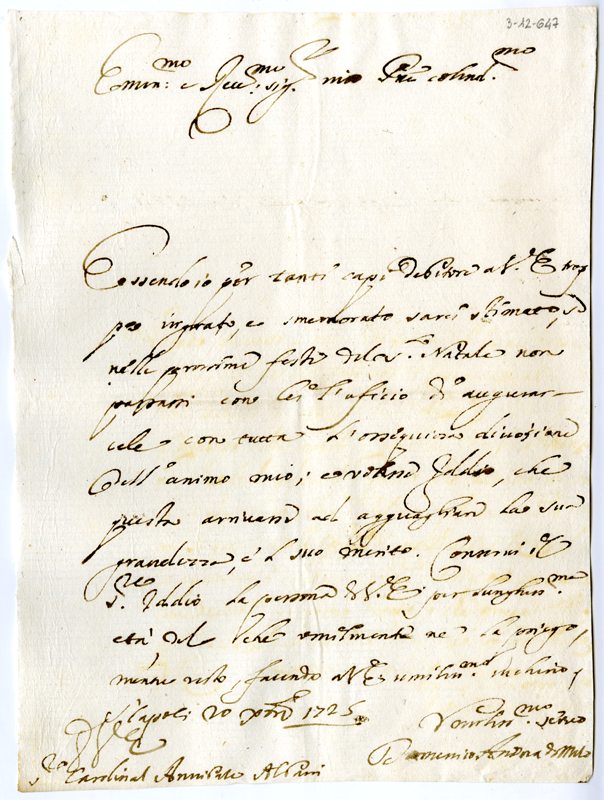 3-12-647
Emin:mo e Rev:mo Sig.r mio P̃ne colend.mo
Essendo io per tanti capi debitore a V.ra E trop
po ingrato, e smemorato sarei stimato, se
nelle prossime feste del S. Natale non
passassi con lei l'ufficio di augurar-
cele con tutta l'ossequiosa divozione
dell'animo mio; e volesse Iddio, che
questa arrivasse ad agguagliare la sua
grandezza, e 'l suo merito. Conservi il
S.re Iddio la persona di V.E. per lunghiss.ma
età, del che umilmente ne la priego,
mentre resto, facendo a V.E. umiliss.mo inchino,
Napoli 20 Xbre 1725
Umiliss.mo servo
S.r Cardinal Annibale Albani
Domenico Andrea di